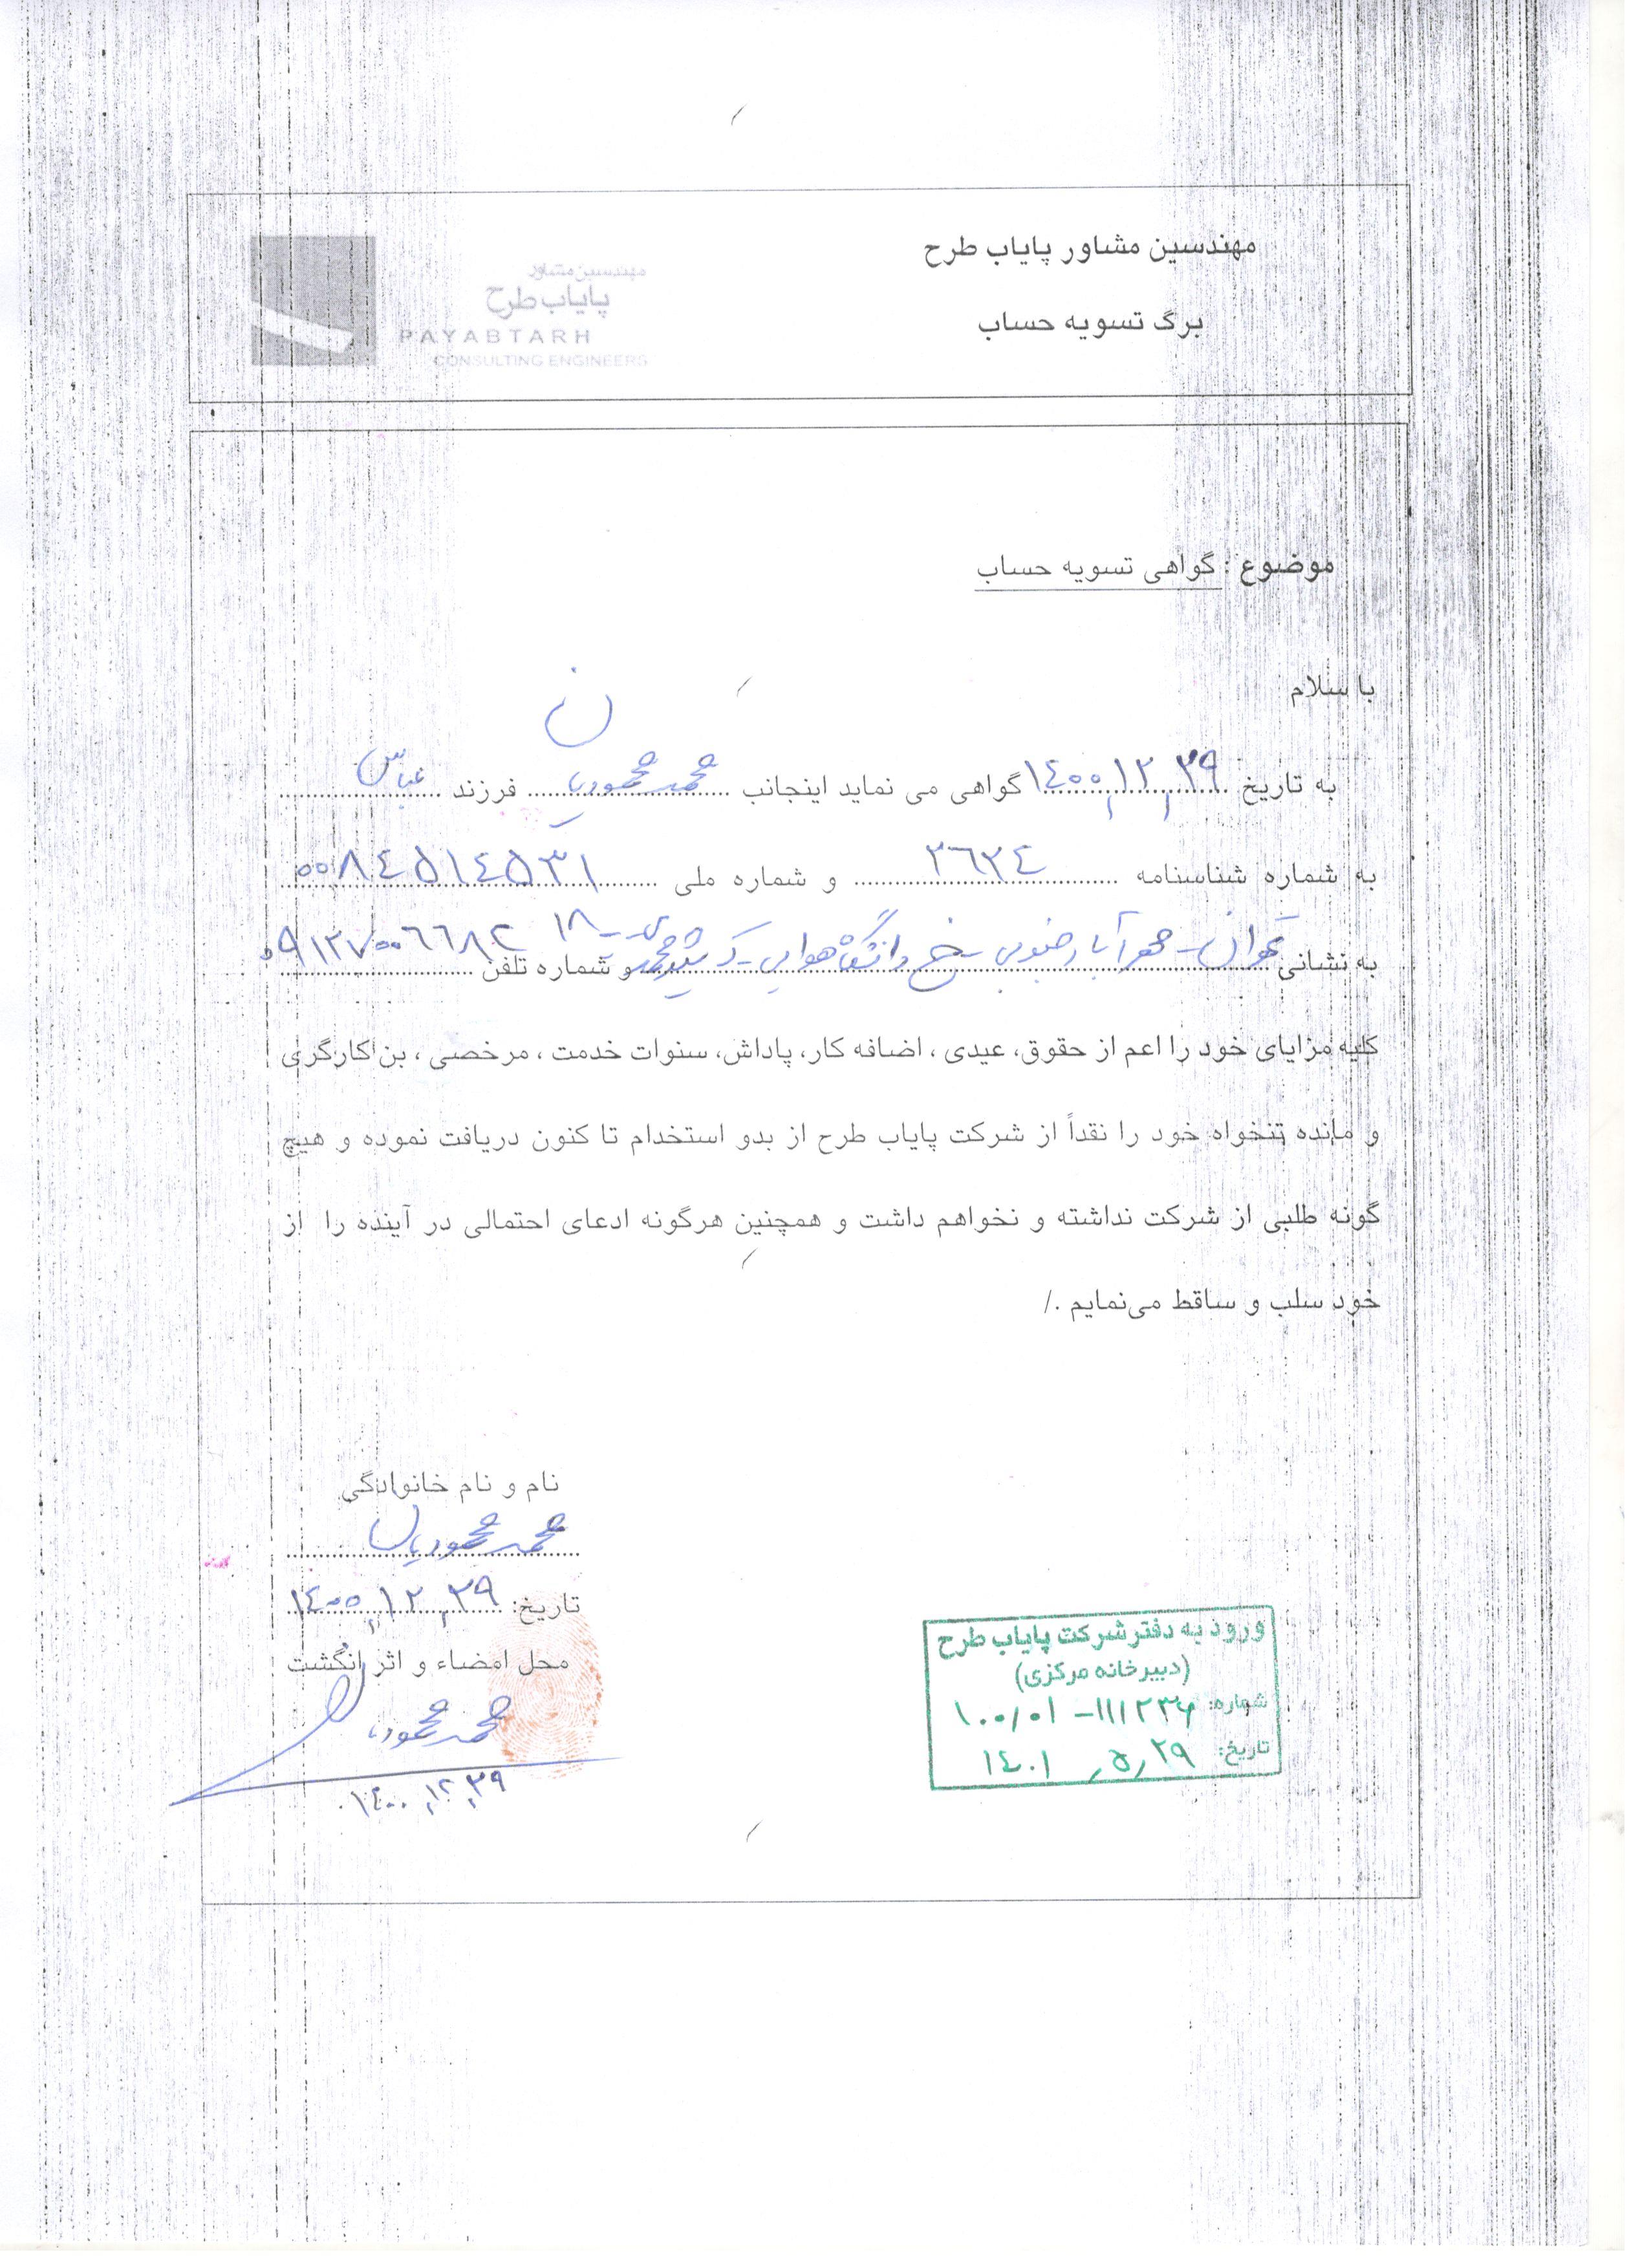 مهندسین مشاور پایاب طرح
برگ تسویه حساب
مهندسین مشاور
پایاب طرح
PAYABTARH
CONSULTING ENGINEERS
موضوع : گواهی تسویه حساب
با سلام
به تاریخ ۱۴۰۰/۱۲/۲۹ گواهی می نماید اینجانب محمد محمودیان فرزند عباس
به شماره شناسنامه ۲۶۲۴ و شماره ملی ۰۰۸۴۵۱۴۵۳۱
به نشانی تهران - مهرآباد جنوبی - خ دانشگاه هوایی - ک شهید محمدی - ۱۸ و شماره تلفن ۰۹۱۲۷۰۰۶۶۸۲
کلیه مزایای خود را اعم از حقوق، عیدی ، اضافه کار، پاداش، سنوات خدمت ، مرخصی ، بن کارگری
و مانده تنخواه خود را نقداً از شرکت پایاب طرح از بدو استخدام تا کنون دریافت نموده و هیچ
گونه طلبی از شرکت نداشته و نخواهم داشت و همچنین هرگونه ادعای احتمالی در آینده را از
خود سلب و ساقط می‌نمایم ./
نام و نام خانوادگی
محمد محمودیان
تاریخ: ۱۴۰۰/۱۲/۲۹
محل امضاء و اثر انگشت
محمد محمودیان
۱۴۰۰/۱۲/۲۹
ورود به دفتر شرکت پایاب طرح
(دبیرخانه مرکزی)
شماره: ۱۰۰/۰۱-۱۱۱۲۳۶
تاریخ: ۱۴۰۱/۵/۲۹